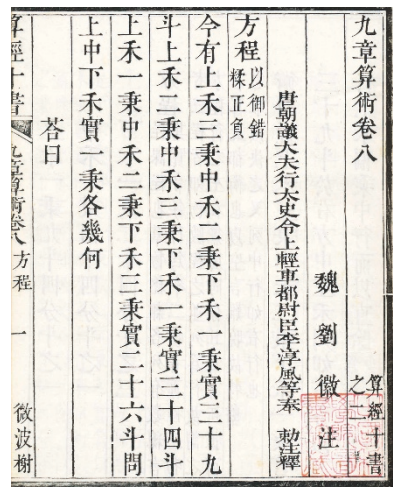 九章算術卷八
算經十書
之二
魏劉徽注
唐朝議大夫行太史令上輕車都尉臣李淳風等奉 勅注釋
方程以御錯
糅正負
今有上禾三秉中禾二秉下禾一秉實三十九
斗上禾二秉中禾三秉下禾一秉實三十四斗
上禾一秉中禾二秉下禾三秉實二十六斗問
上中下禾實一秉各幾何
荅曰
算經十書 九章算術卷八 方程 一 微波榭